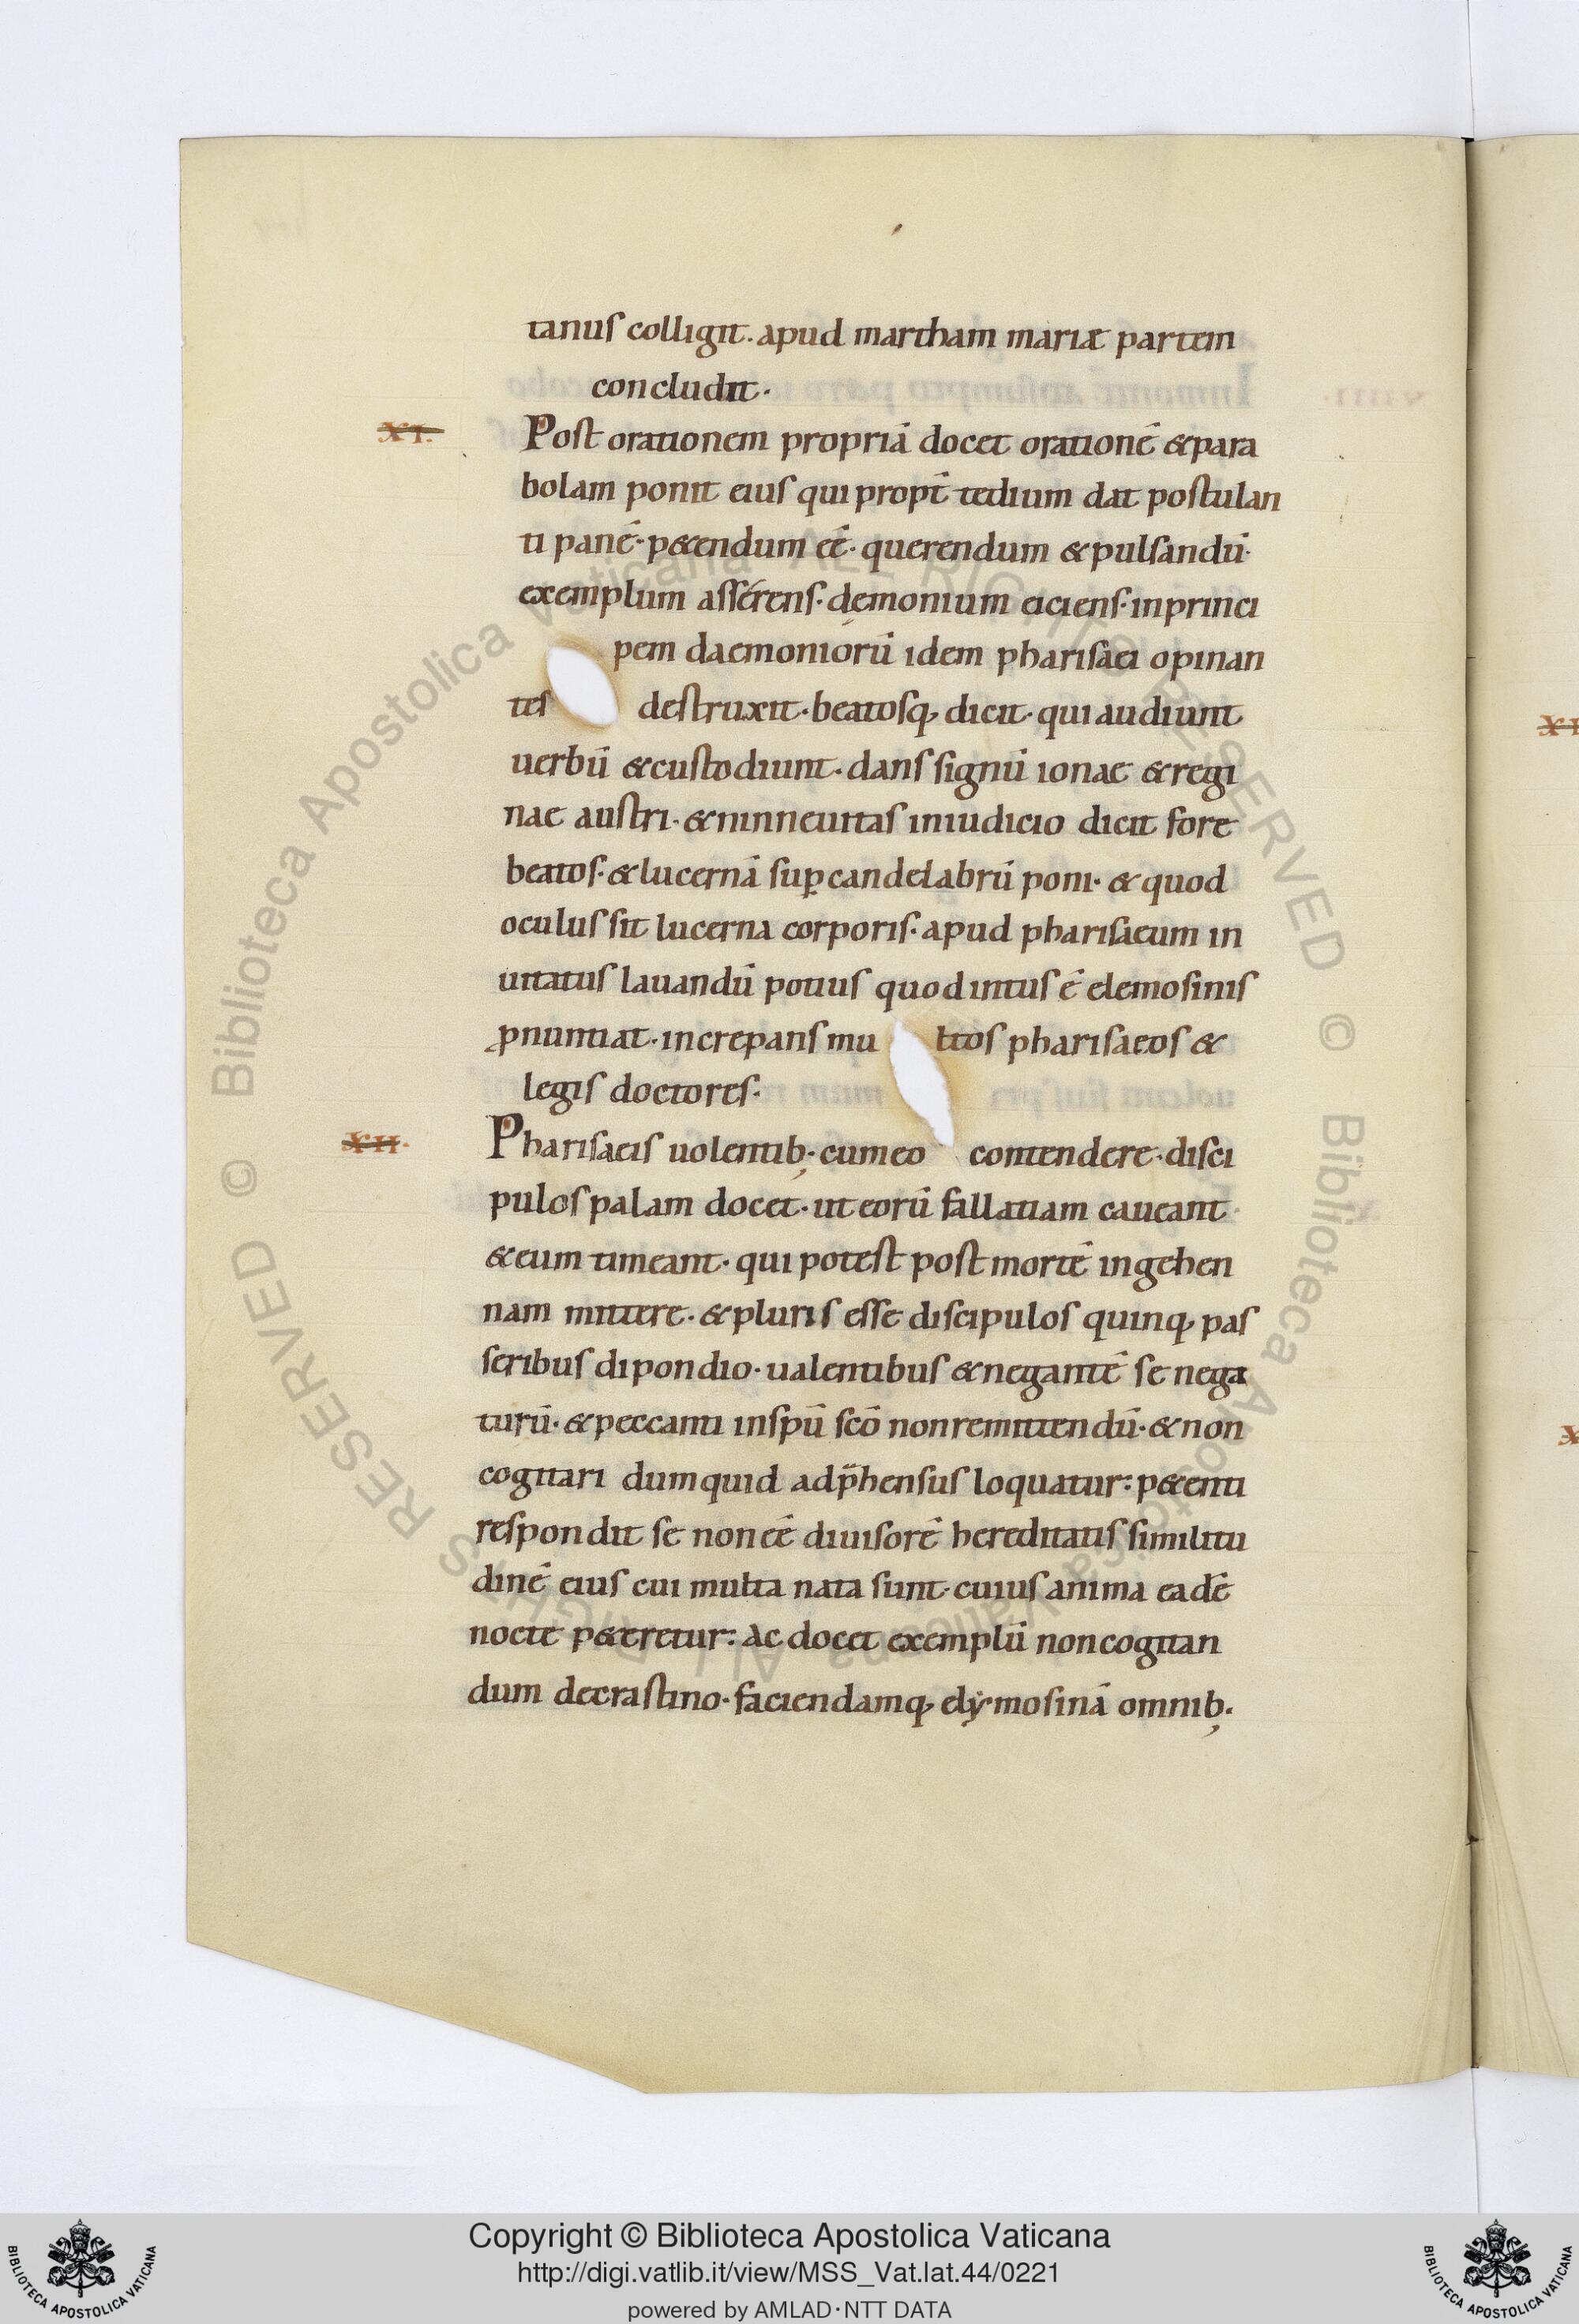 tanus colligit. apud martham mariæ partem
concludit.
XI.
Post orationem propriā docet orationē & para
bolam ponit eius qui propt̄ tedium dat postulan
ti panē· p&endum eē· querendum & pulsandū·
exemplum asserens· demonium eiciens· in princi
pem daemoniorū idem pharisaei opinan
tes destruxit· beatosq; dicit· qui audiunt
uerbū & custodiunt· dans signū ionae & regi
nae austri· & ninneuitas in iudicio dicit fore
beatos· & lucernā sup̱ candelabrū poni· & quod
oculus sit lucerna corporis· apud pharisaeum in
uitatus lauandū potius quod intus ē elemosinis
ꝓnuntiat· increpans multos pharisaeos &
legis doctores·
XII.
Pharisaeis uolentib; cum eo contendere· disci
pulos palam docet· ut eorū fallatiam caueant
& eum timeant· qui potest post mortē in gehen
nam mittere· & pluris esse discipulos quinq; pas
seribus dipondio· ualentibus & negantē se nega
turū· & peccanti in sp̄u sc̄o non remittendū· & non
cogitari dum quid adp̄hensus loquatur: p&enti
respondit se non eē diuisorē hereditatis similitu
dinē eius cui multa nata sunt· cuius anima eadē
nocte p&eretur: Ac docet exemplū non cogitan
dum de crastino· faciendamq; elymosinā omnib;
Copyright © Biblioteca Apostolica Vaticana
http://digi.vatlib.it/view/MSS_Vat.lat.44/0221
powered by AMLAD·NTT DATA
BIBLIOTECA APOSTOLICA VATICANA
BIBLIOTECA APOSTOLICA VATICANA
© Biblioteca Apostolica Vaticana ALL RIGHTS RESERVED © Biblioteca Apostolica Vaticana ALL RIGHTS RESERVED